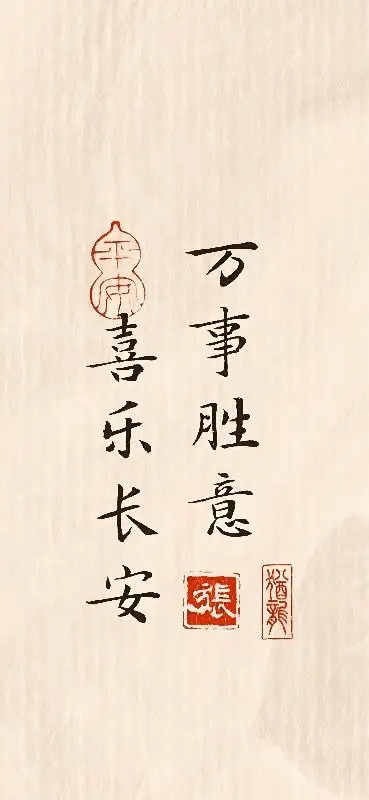 万事胜意
張
猶龍
平安
喜乐长安